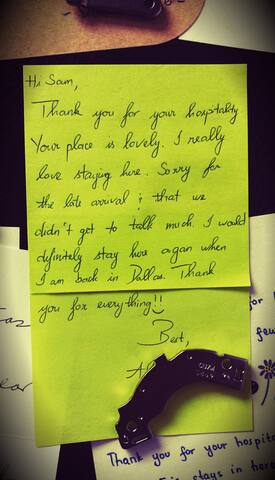 Hi Sam,
Thank you for your hospitality
Your place is lovely. I really
love staying here. Sorry for
the late arrival & that we
didn't get to talk much. I would
definitely stay here again when
I am back in Dallas. Thank
you for everything!!
Best,
for
few
ear
Thank you for your hospi
stays in here